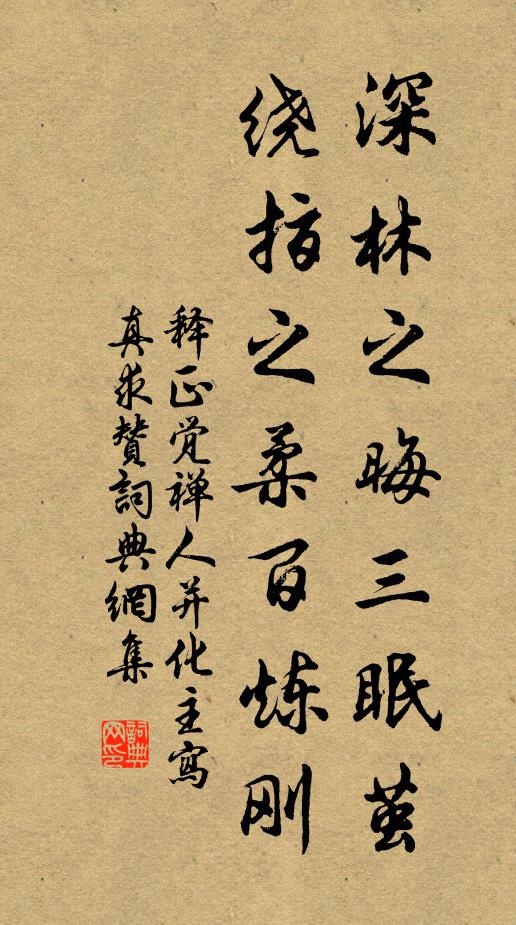 深林之晦三眠茧
绕指之柔百炼刚
释正觉禅人并化主写
真求赞詞典網集
詞典网印